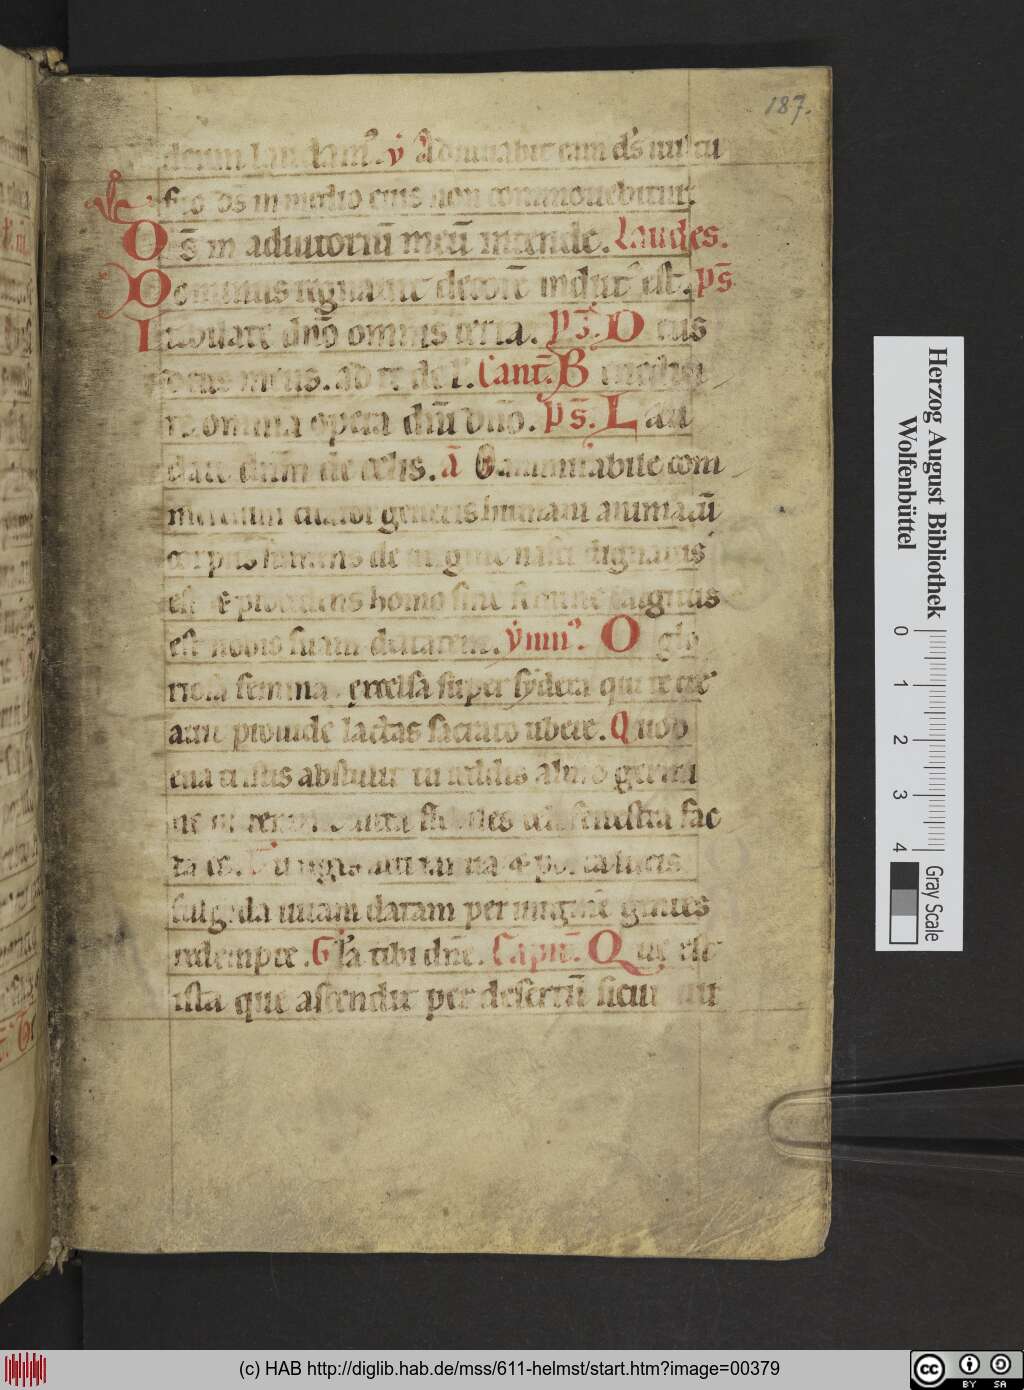 187.
laudam⁹. v̇ Adiuuabit eam ds̄ uultu
suo ds̄ in medio eius non commouebitur.
Ds̄ in adiutoriū meū intende. Laudes.
Dominus regnauit decorē indut⁹ est. ps̄
Iubilate dn̄o omnis terra. ps̄. Deus
deus meus. ad te de l'. Cant̄. Benedici
te omnia opera dn̄i dn̄o. ps̄. Lau
date dn̄m de celis. ā O ammirabile com
mercium creator generis humani animatū
corpus sumens de uirgine nasci dignatus
est & procedens homo sine semine largitus
est nobis suam deitatem. ẏmn⁹. O glo
riosa femina. excelsa super sydera qui te cre
auit prouide lactas sacrato ubere. Quod
eua tristis abstulit tu reddis almo germi
ne celi fenestra fac
ta es. Tu regis alti ianua & porta lucis
fulgida uitam datam per uirginē gentes
redempte. Gl'a tibi dn̄e. Capit̄. Que est
ista que ascendit per desertū sicut uir
Herzog August Bibliothek
Wolfenbüttel
0 1 2 3 4
Gray Scale
(c) HAB http://diglib.hab.de/mss/611-helmst/start.htm?image=00379
cc BY SA